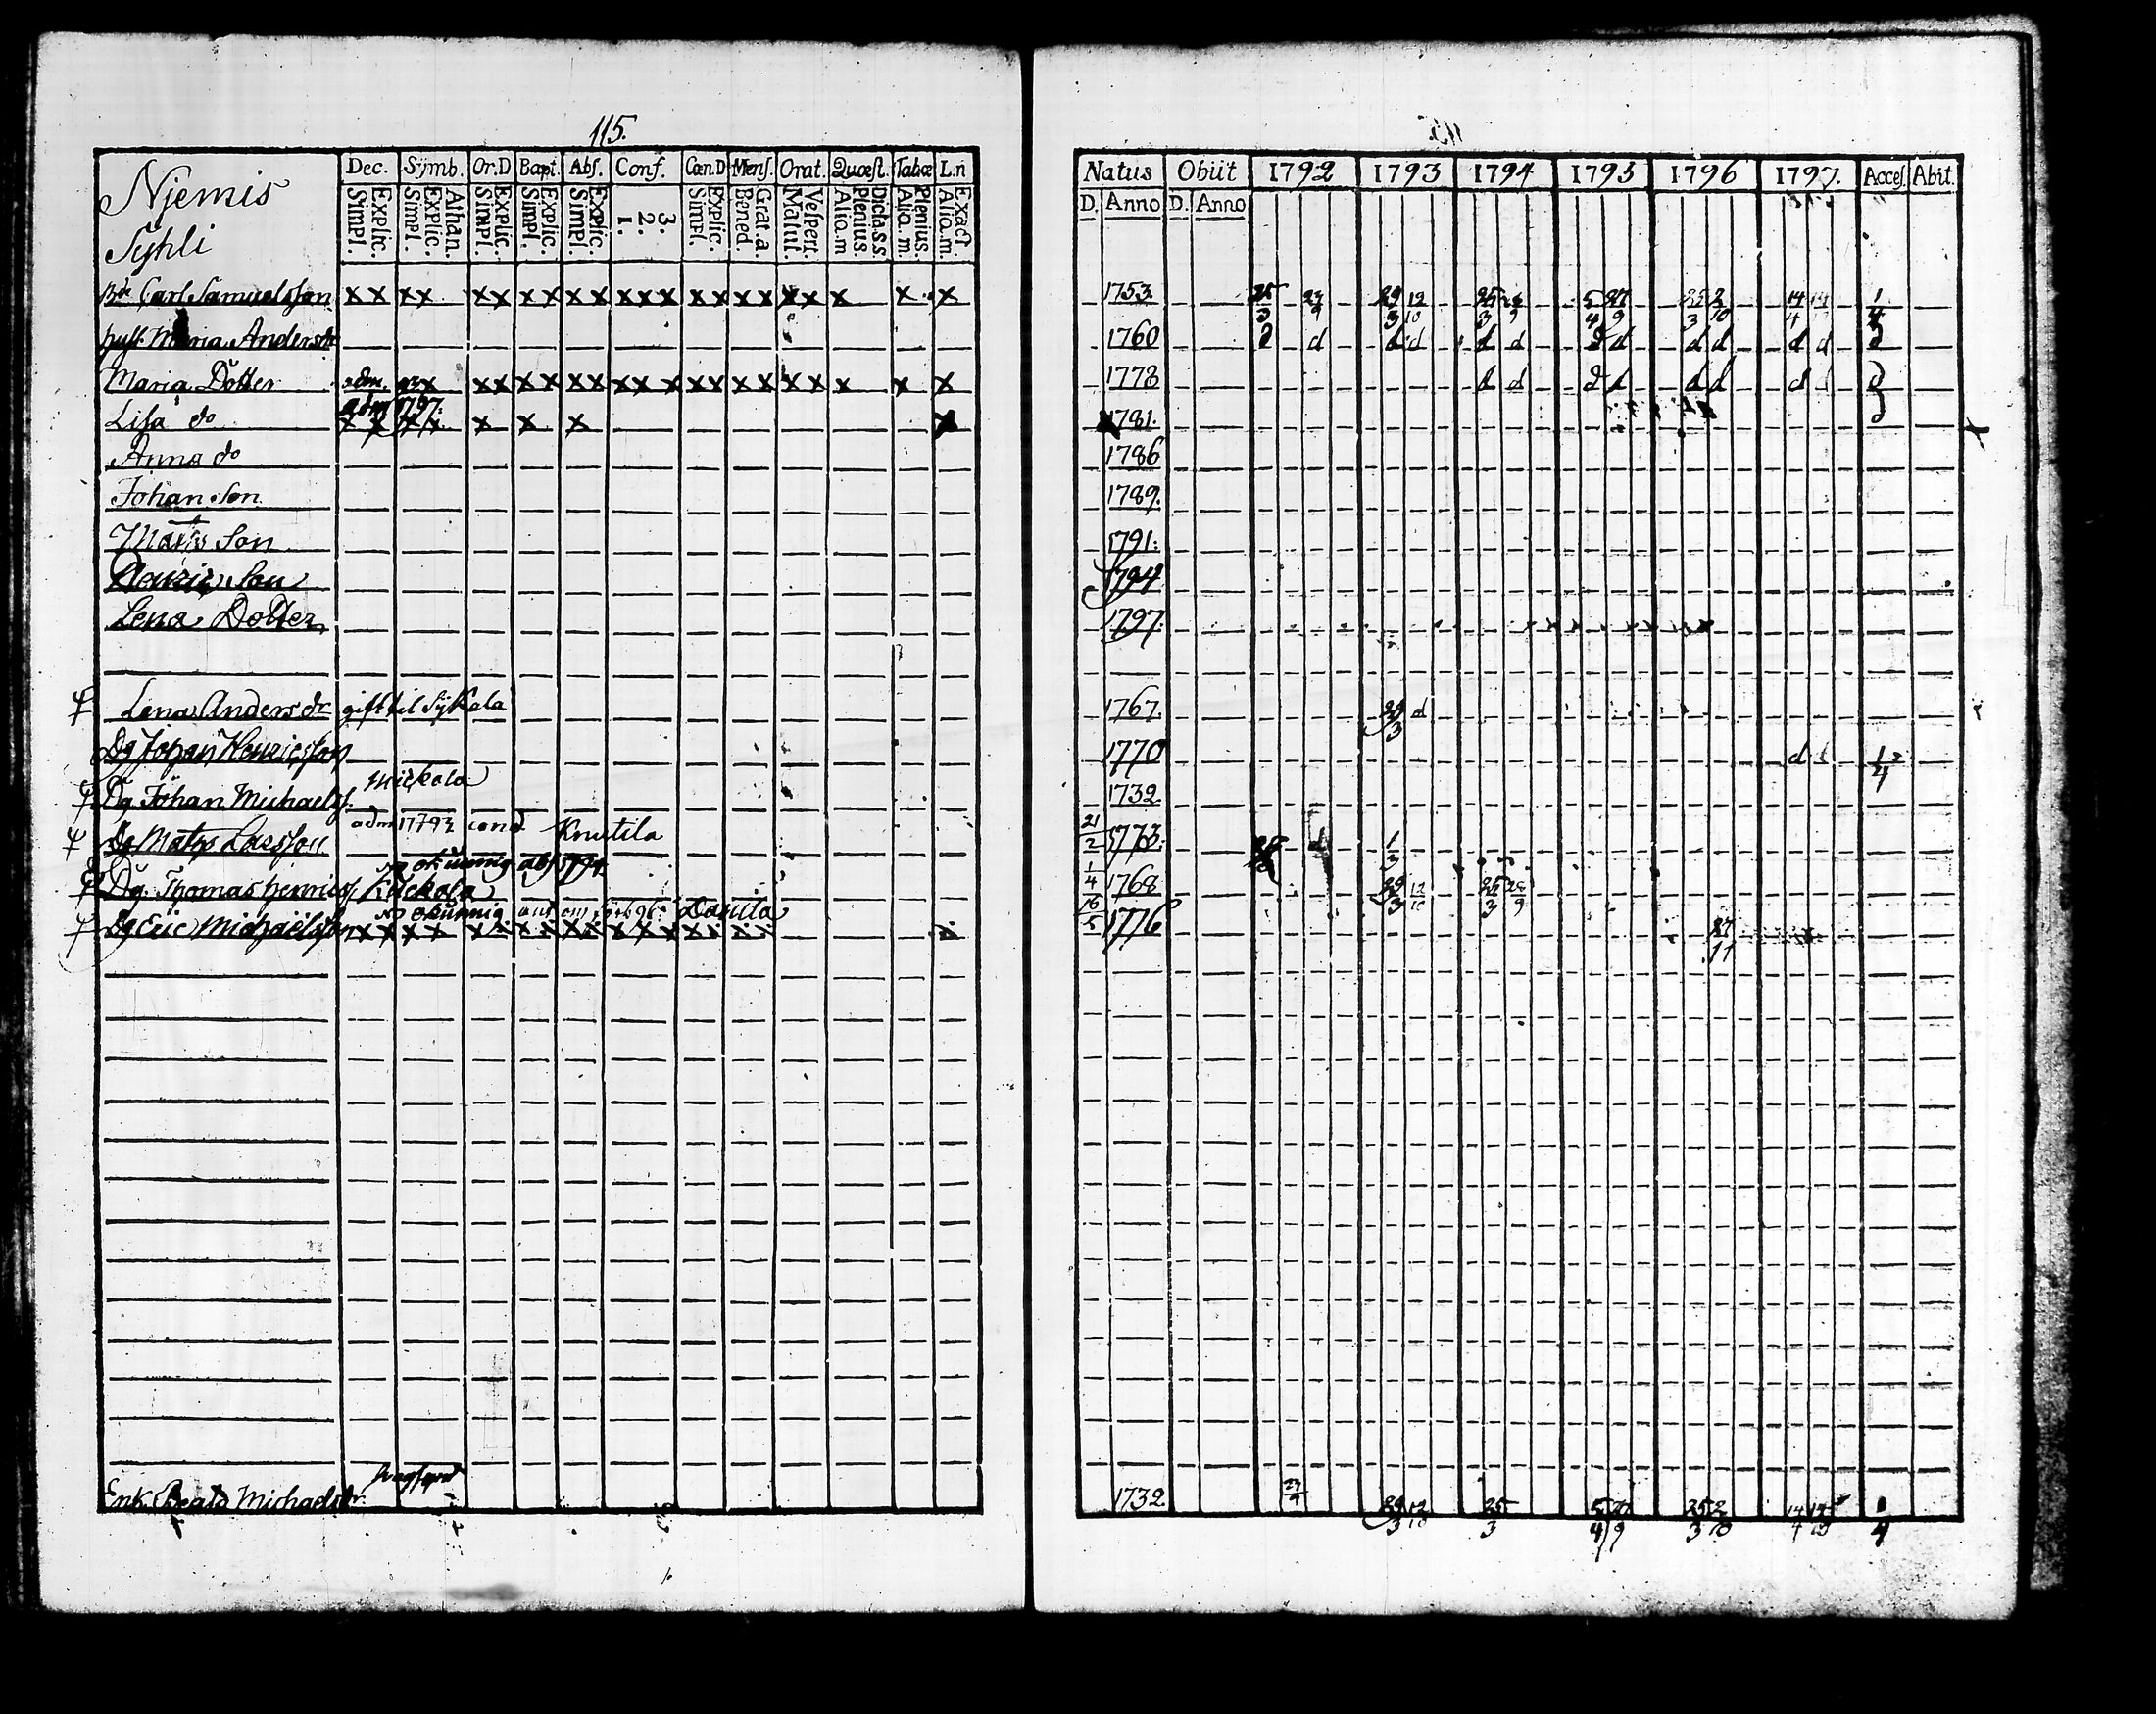 115.
Njemis
Syhli
Dec. Symb. Or.D Bapt. Abs. Conf. Cœn.D Mens. Orat. Quæst. Tabœ L.n
Explic. Simpl. Athan. Explic. Simpl. Explic. Simpl. Explic. Simpl. Explic. Simpl. 3. 2. 1. Explic. Simpl. Grat.a. Bened. Vespert. Matut. Dicta.s.s Plenius. Aliq.m Plenius. Aliq.m Exact Aliq.m.
Carl Samuelsson x x x x x x x x x x x x x x x x x x x x x x
hust. Maria Andersdr
Maria Dotter adm. x x x x x x x x x x x x x x x x x x x
adm 1797.
Lisa do x x x x x x x x
Anna do
Johan Son
Matts Son
Henric Son
Lena Dotter
Lena Andersdr gift til Sykala
Dg Johan Henricsson
Mickola
Dg Johan Michaelss.
Knutila
Dg Mats Larsson
okunnig abs 1794
Dg. Thomas Henricss
okunnig Danila
Dg Eric Michaëlsson x x x x x x x x x x x x x x x x x
Enk. Beata Michaelsdr.
Natus Obiit 1792 1793 1794 1795 1796 1797. Acces. Abit.
D. Anno D. Anno
1753 25/3 27/9 29/3 12/10 25/3 28/9 5/4 27/9 25/3 2/10 14/4 1/4
1760 d d d d d d d d d d d d d
1778 d d d d d d d d d
1781. d
1786
1789.
1791.
1794
1797
1767 29/3 d
1770 d 1/4
1732
21/2 1773.
1/4 1768 29/3 12/10 25/3 28/9
16/5 1776 27/11
1732 27/9 29/3 12/10 25/3 5/4 27/9 25/3 2/10 14/4 1/4